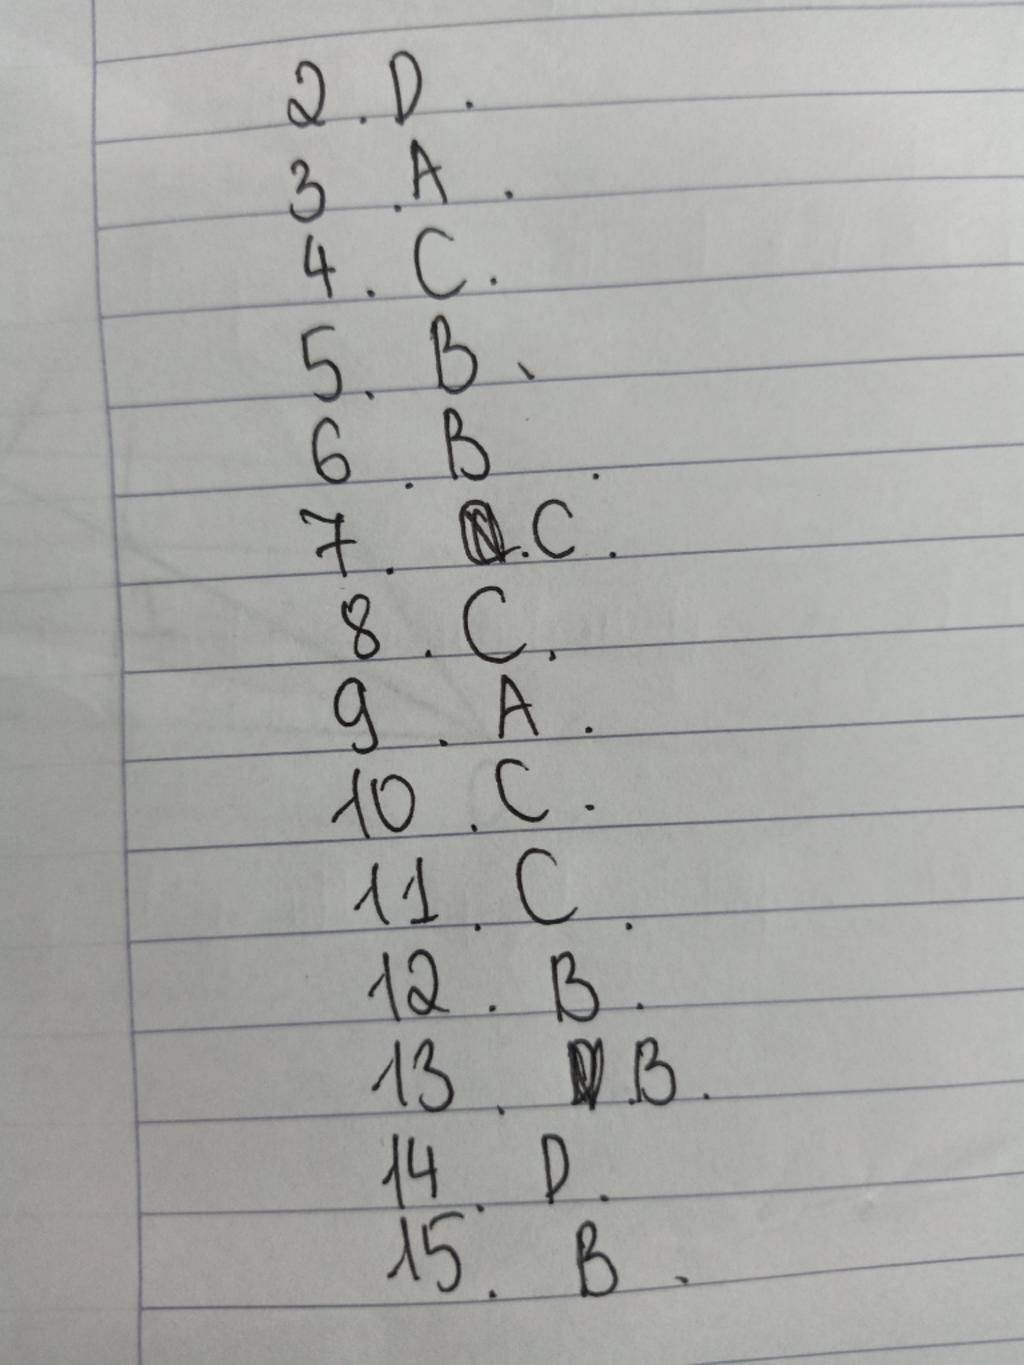 2. D.
3. A.
4. C.
5. B.
6. B.
7. C.
8. C.
9. A.
10. C.
11. C.
12. B.
13. B.
14. D.
15. B.